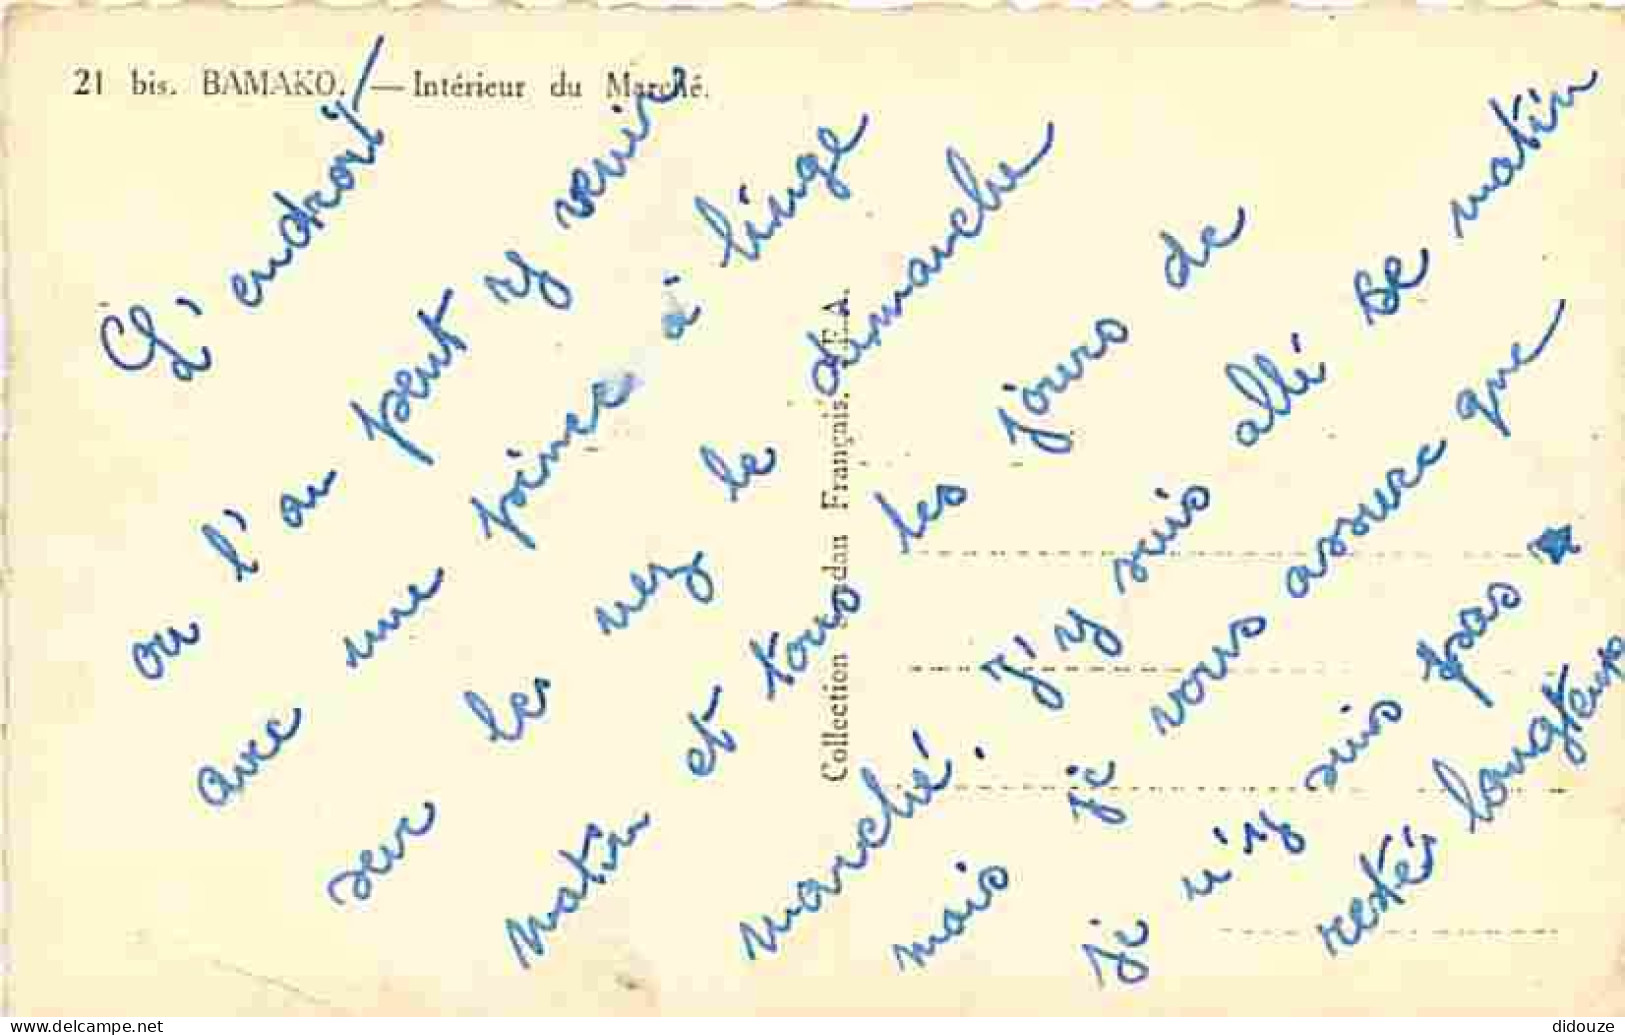 21 bis. BAMAKO. — Intérieur du Marché.
L'endroit
ou l'on peut y venir
avec une pince à linge
sur le nez le dimanche
matin et tous les jours de
marché. J'y suis allé se matin
mais je vous assure que
je n'y suis pas
restér longtemps
Collection Soudan Français. E.A.
www.delcampe.net
didouze